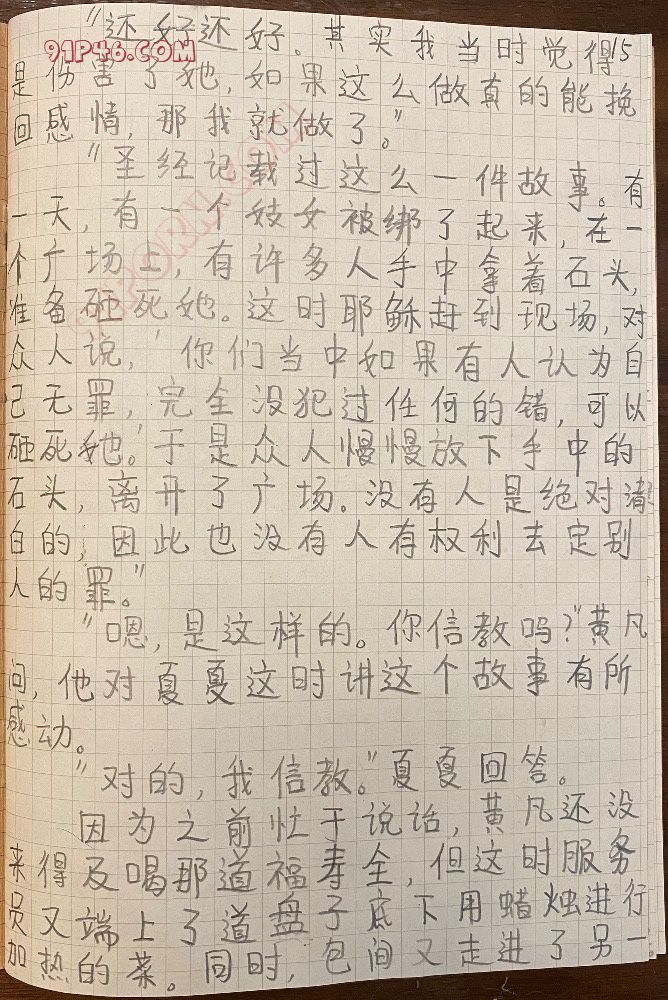 "还好还好。其实我当时觉得 15
91P46.COM
是伤害了她,如果这么做真的能挽
回感情,那我就做了。"
"圣经记载过这么一件故事。有
一天,有一个妓女被绑了起来,在一
个广场上,有许多人手中拿着石头,
准备砸死她。这时耶稣赶到现场,对
众人说,'你们当中如果有人认为自
己无罪,完全没犯过任何的错,可以
砸死她。'于是众人慢慢放下手中的
石头,离开了广场。没有人是绝对清
白的,因此也没有人有权利去定别
人的罪。"
"嗯,是这样的。你信教吗?"黄凡
问,他对夏夏这时讲这个故事有所
感动。
"对的,我信教。"夏夏回答。
因为之前忙于说话,黄凡还没
来得及喝那道福寿全,但这时服务
员又端上了道盘子底下用蜡烛进行
加热的菜。同时,包间又走进了另一